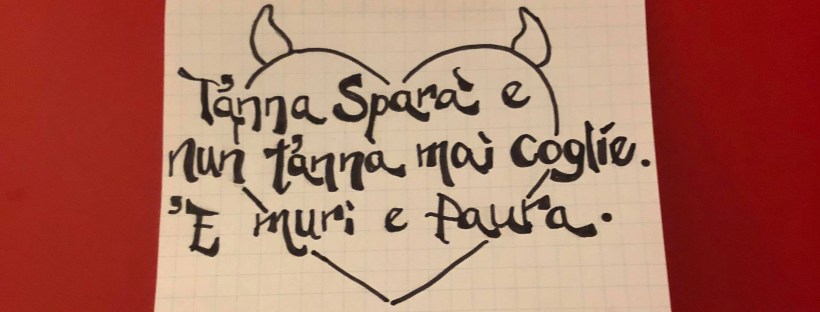 T'anna Sparà e
nun t'anna mai coglie.
'E muri e paura.